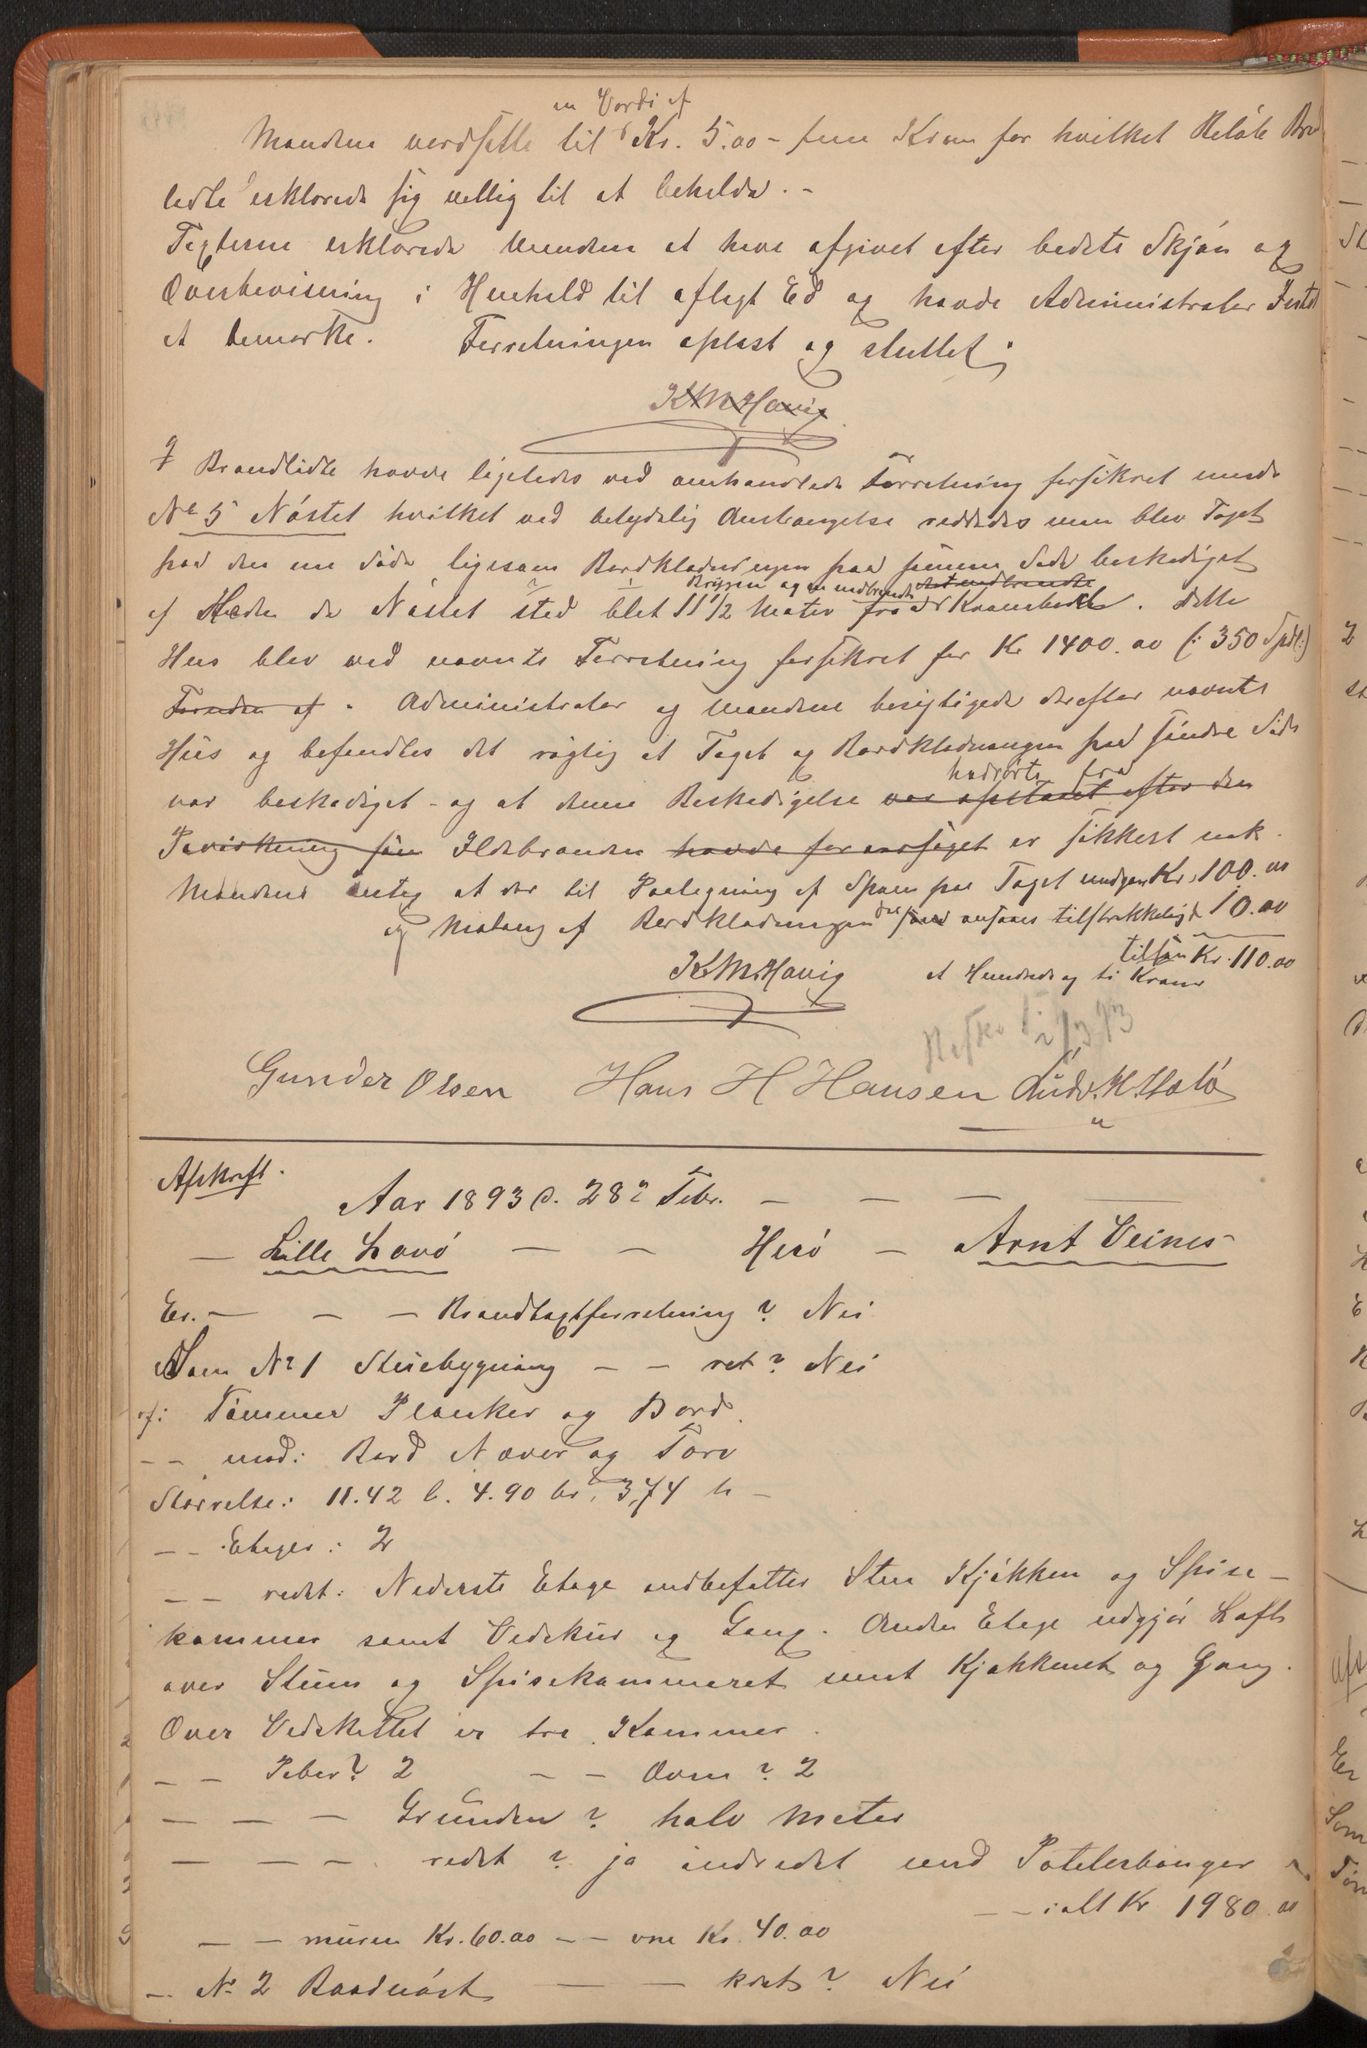 en Værdi af
Mændene verdsatte til Kr. 5.00 - fem Kroner for hvilket Beløb Brand
lidte erklærede sig villig til at beholde. -
Taxterne erklærede Mændene at have afgivet efter bedste Skjøn og
Overbevisning i Henhold til aflagt Ed og havde Administrator Intet
at bemærke. Forretningen oplæst og sluttet
K.M.Havig
Brandlidte havde ligeledes ved omhandlede Forretning forsikret under
No 5 Nøstet hvilket ved betydelig Anstrængelse reddedes men blev Taget
paa den ene Side ligesom Bordklædningen paa samme Side beskadiget
Bryggen og den nedbrændte
af Heden da Nøstet stod blot 11 1/2 Meter fra Kramboden. Dette
Hus blev ved nævnte Forretning forsikret for Kr 1400.00 (: 350 Spdl:)
Administrator og Mændene besigtigede derefter nævnte
Hus og befandtes det rigtig at Taget og Bordklædningen paa søndre Side
hidrørte fra
var beskadiget - og at denne Beskadigelse var opstaaet efter den
Paavirkning som Ildebranden havde foraarsaget er sikkert nok.
Mændene antog at der til Paalægning af Spaan paa Taget medgaar Kr. 100.00
og Maling af Bordklædningen ansaaes tilstrækkelig 10.00
tilsam Kr. 110.00
K.M.Havig et Hundrede og ti Kroner
2/3 93
Gunder Olsen Hans H Hansen
Afskrift.
Aar 1893 d. 28? Febr. — — —
— Lille Havø — — Herø — Arnt Veines
Er. — — — Brandtaxtforretning? Nei
Som No 1 Stuebygning — — ret? Nei
af: Tømmer Planker og Bord.
— — med: Bord Næver og Torv
Størrelse: 11.42 l. 4.90 br. 3,74 h —
— — Etager: 2
— — redet: Nederste Etage indbefatter Stue Kjøkken og Spise-
kammer samt Vedskur og Gang. Anden Etage udgjør Loft
over Stuen og Spisekammeret samt Kjøkkenet og Gang.
Over Vedskullet er tre Kammer.
— — Piber? 2 — — Ovne? 2
— — — Grunden? halv Meter
— — — redet? ja indredet med
— — ialt Kr 1980.00
— — muren Kr. 60.00 — — vne Kr. 40.00
— No 2 Baadnøst — — kret? Nei